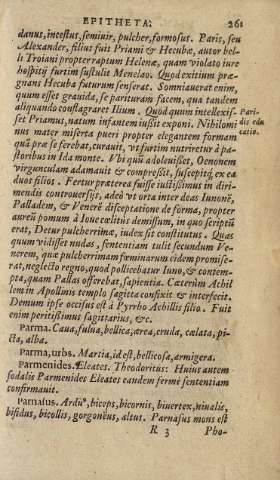 EPITHETA. 261
danus, incestus, semiuir, pulcher, formosus. Paris, seu
Alexander, filius fuit Priami & Hecubæ, autor bel-
li Troiani propter raptum Helenæ, quam violato iure
hospitij furtim sustulit Menelao. Quod exitium præ-
gnans Hecuba futurum senserat. Somniauerat enim,
quum esset grauida, se parituram facem, qua tandem
aliquando conflagraret Ilium. Quod quum intellexis-
set Priamus, natum infantem iußit exponi. Nihilomi
nus mater miserta pueri propter elegantem formam
quã præ se ferebat, curauit, vt furtim nutriretur à pa-
storibus in Ida monte. Vbi quũ adoleuisset, Oenonem
virgunculam adamauit & compressit, suscepitq́; ex ea
duos filios. Fertur præterea fuisse iustißimus in diri-
mendis controuersijs, adeò vt orta inter deas Iunonẽ,
Palladem, & Venerẽ disceptatione de forma, propter
aureũ pomum à Ioue cælitus demissum, in quo scriptũ
erat, Detur pulcherrimæ, iudex sit constitutus. Quas
quum vidisset nudas, sententiam tulit secundum Ve-
nerem, quæ pulcherrimam fœminarum eidem promise-
rat, neglecto regno, quod pollicebatur Iuno, & contem-
pta, quam Pallas offerebat, sapientia. Cæterùm Achil
lem in Apollinis templo sagitta confixit & interfecit.
Demum ipse occisus est à Pyrrho Achillis filio. Fuit
enim peritißimus sagittarius, &c.
Pari-
dis edu
catio.
Parma. Caua, fulua, bellica, ærea, cruda, cælata, pi-
cta, alba.
Parma, vrbs. Martia, id est, bellicosa, armigera.
Parmenides. Æleates. Theodoritus: Huius autem
sodalis Parmenides Eleates eandem fermè sententiam
confirmauit.
Parnasus. Arduꝰ, bicops, bicornis, biuertex, niualis,
bifidus, bicollis, gorgonëus, altus. Parnasus mons est
R 3 Pho-